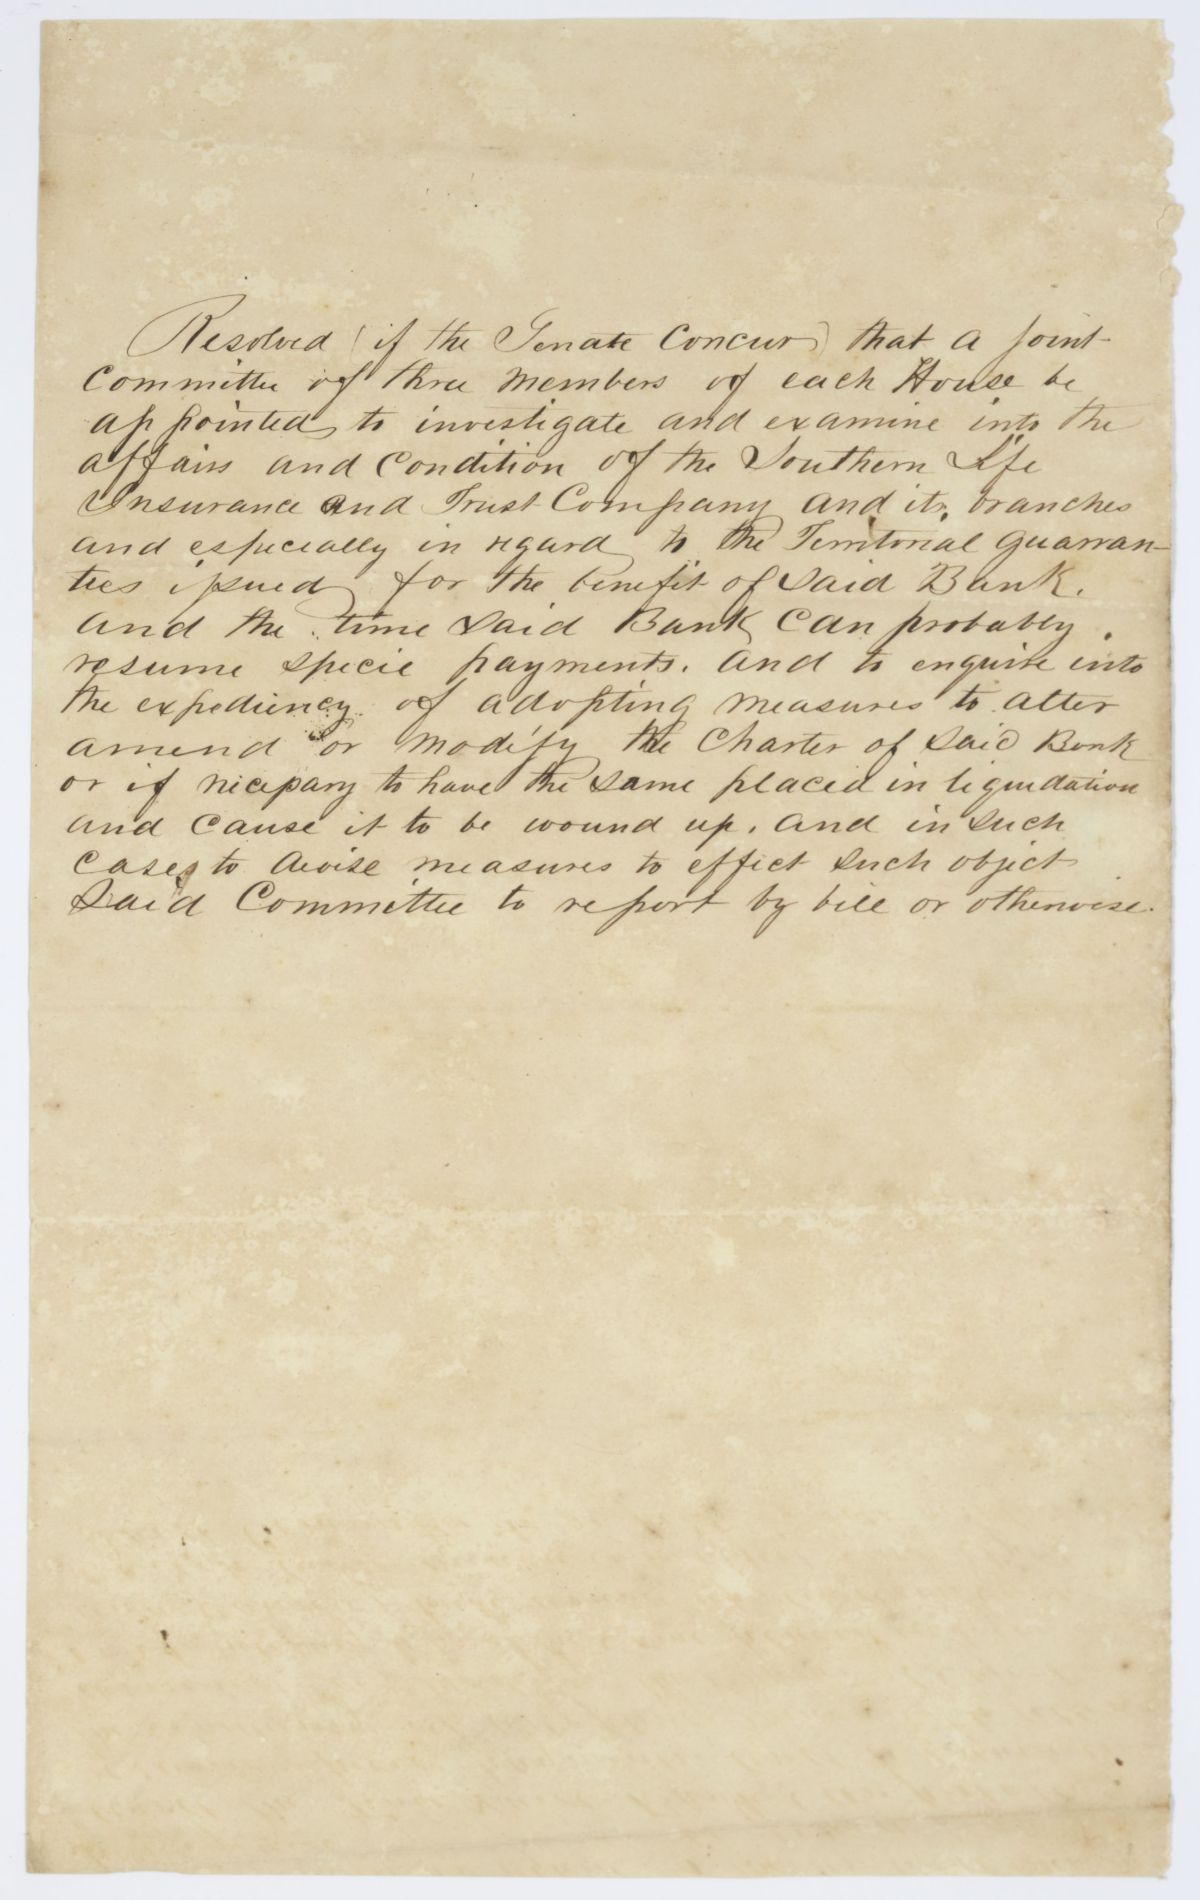 Resolved (if the Senate Concur) that a joint
Committee of three members of each House be
appointed to investigate and examine into the
affairs and Condition of the Southern Life
Insurance and Trust Company and its branches
and especially in regard to the Territorial guarran-
tees issued for the benefit of said Bank.
and the time said Bank can probably
resume specie payments. and to enquire into
the expediency of adopting measures to alter
amend or modify the Charter of said Bank
or if necessary to have the same placed in liquidation
and cause it to be wound up. and in such
cases to devise measures to effect such object
Said Committee to report by bill or otherwise.